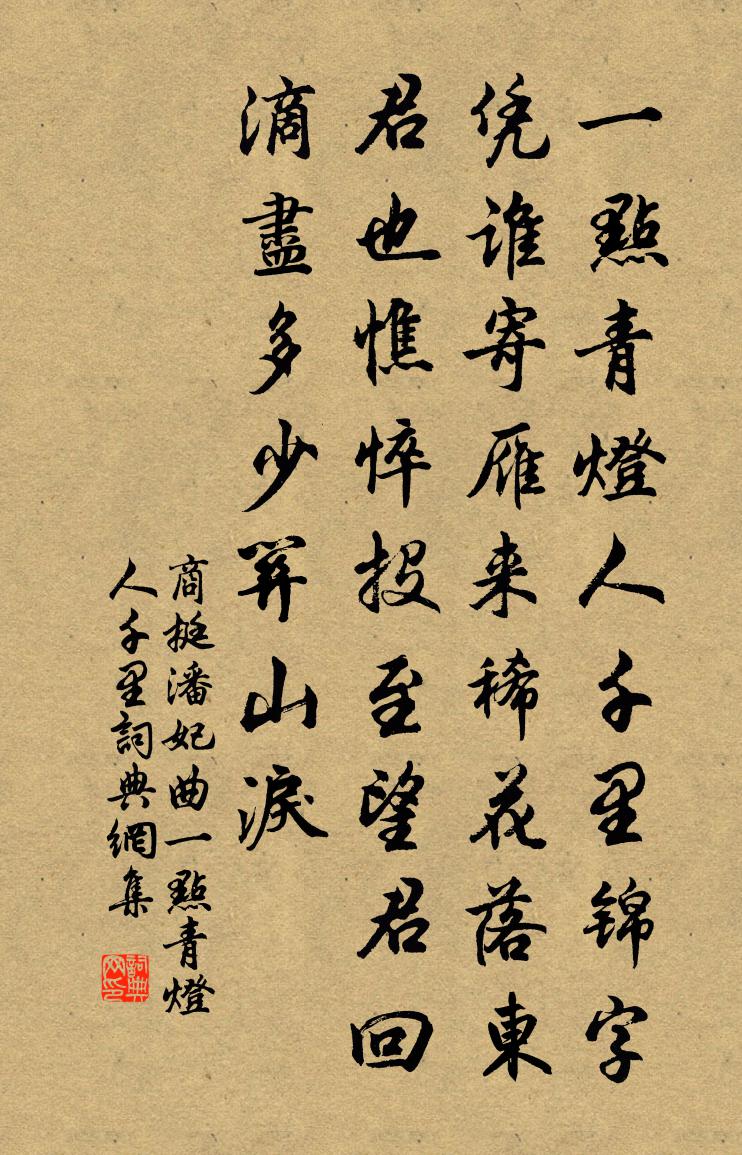 一點青燈人千里錦字
凭誰寄雁来稀花落東
君也憔悴投至望君回
滴盡多少関山淚
商挺潘妃曲一點青燈
人千里詞典網集
詞典网印